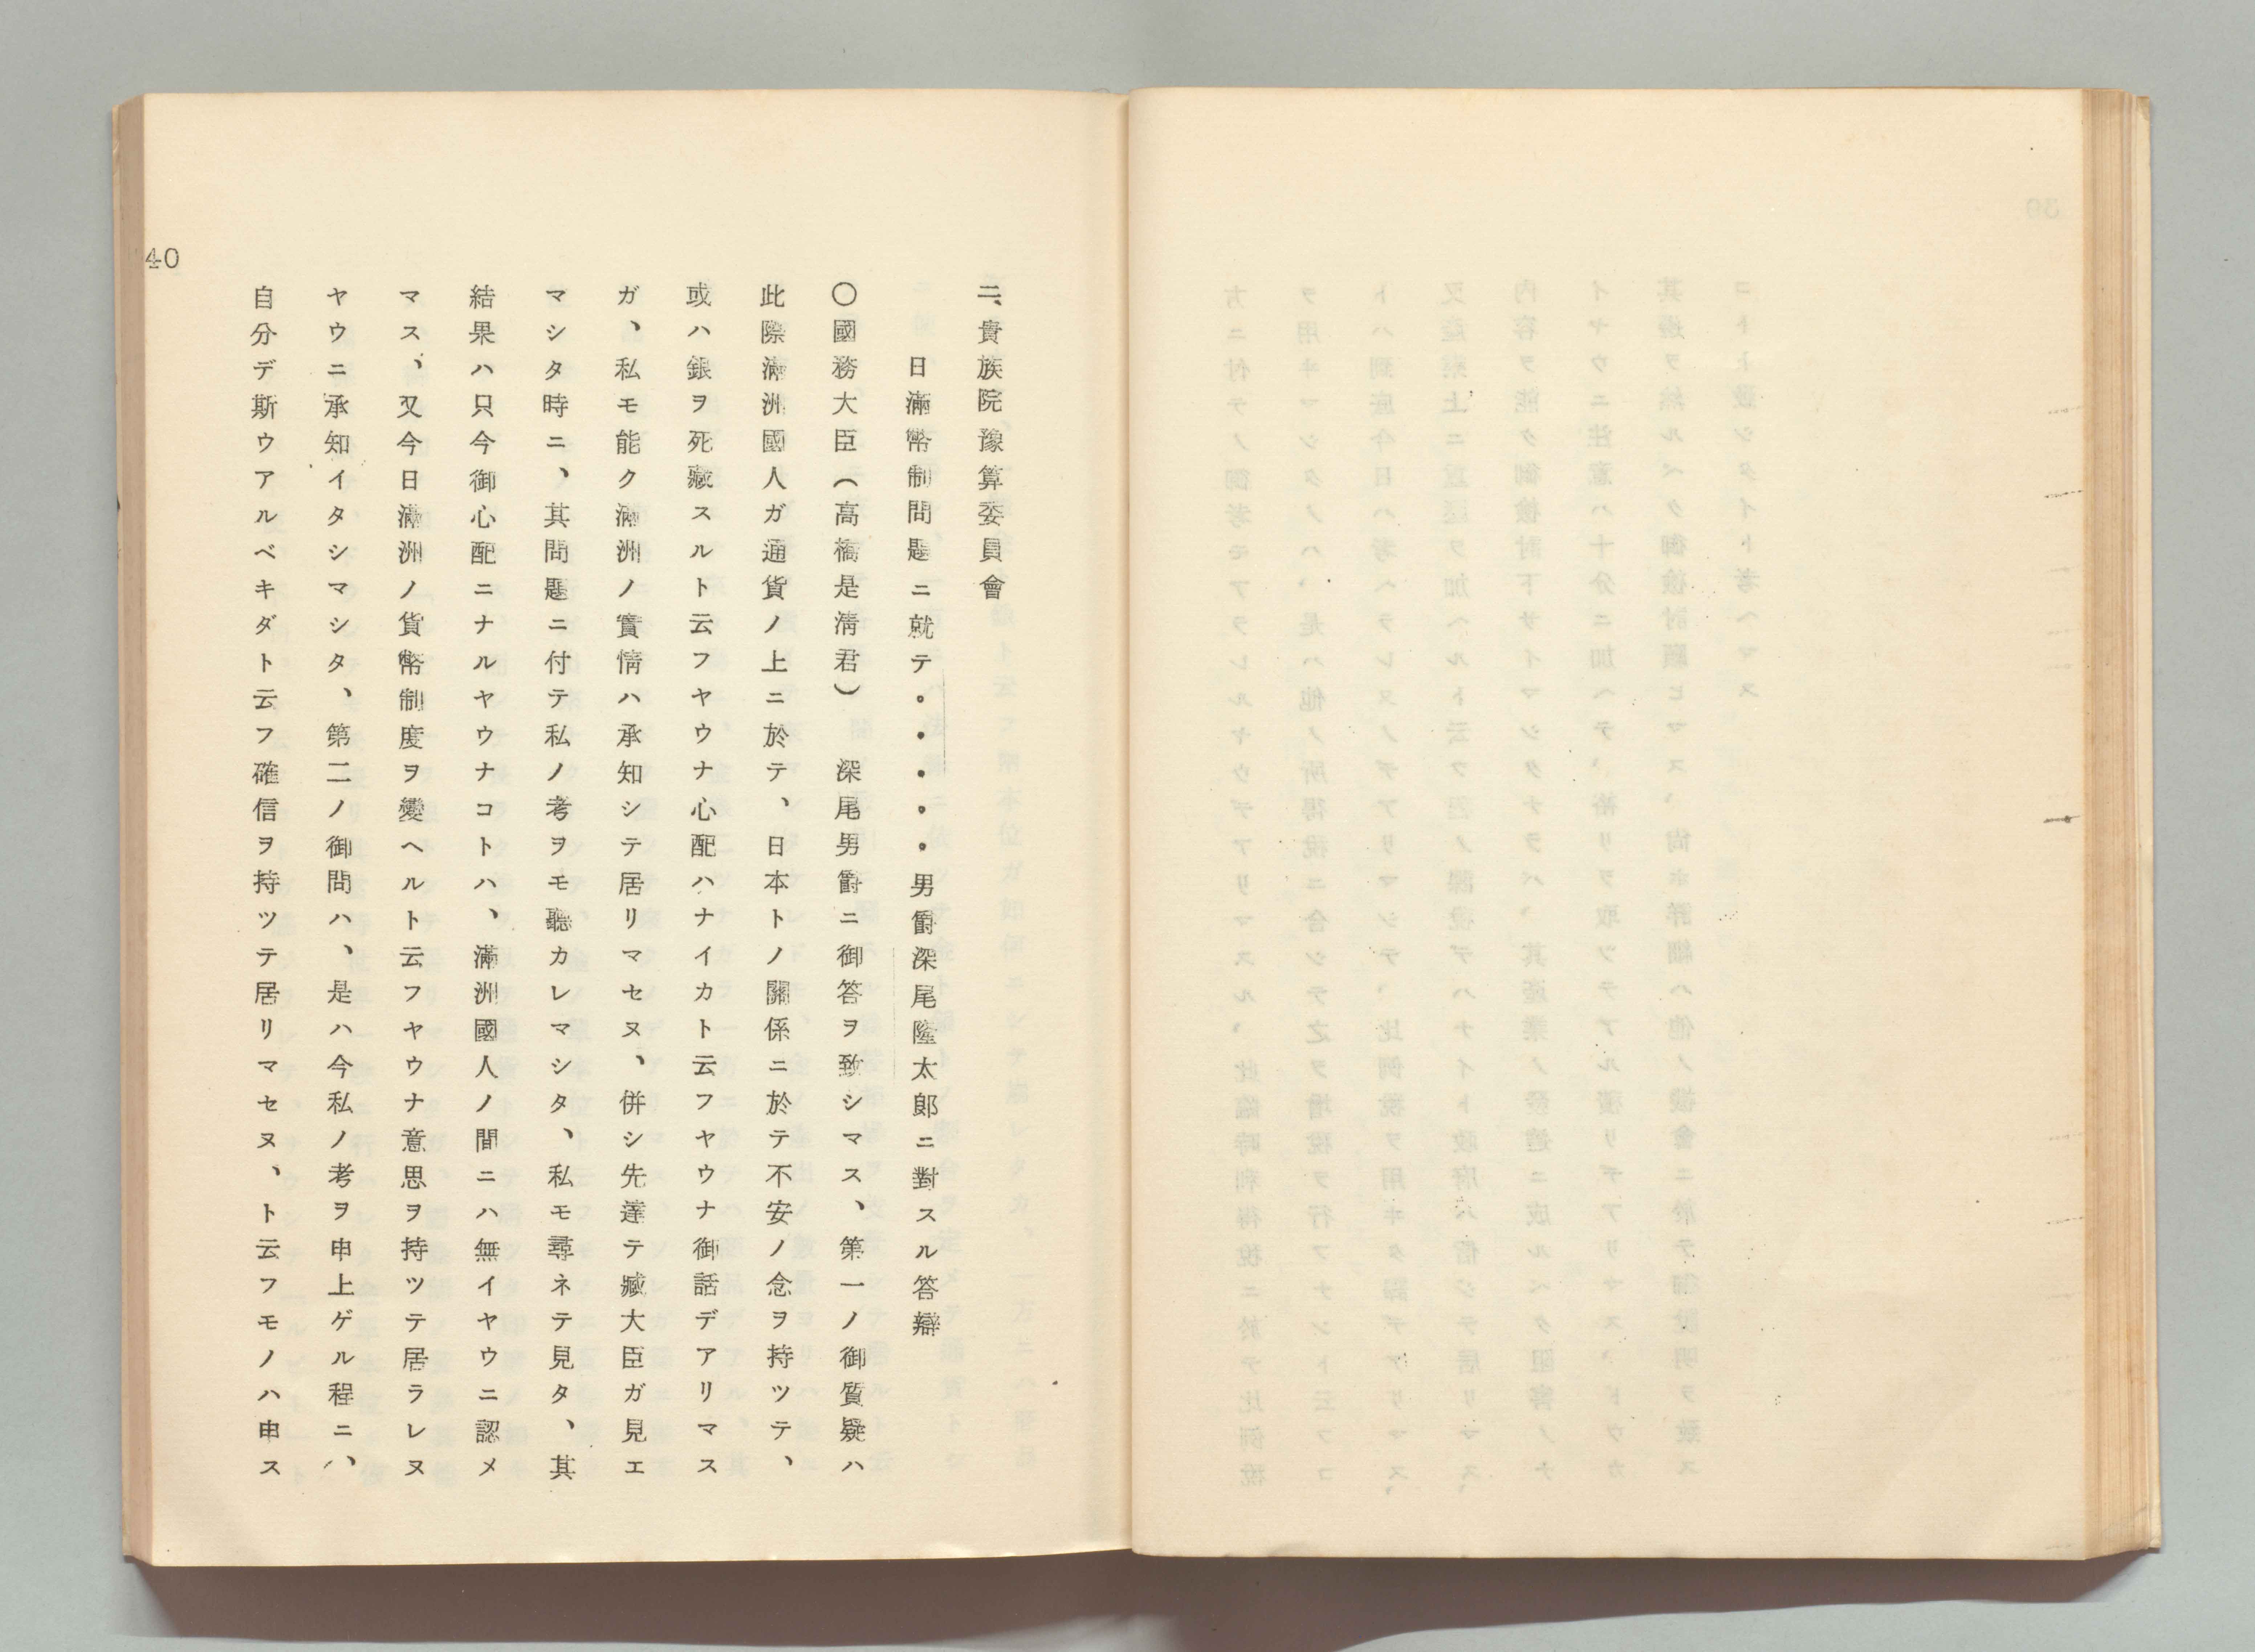 二、貴族院豫算委員會
日滿幣制問題ニ就テ。・・。・男爵深尾隆太郎ニ對スル答辯
〇國務大臣(高橋是淸君) 深尾男爵ニ御答ヲ致シマス、第一ノ御質疑ハ
此際滿洲國人ガ通貨ノ上ニ於テ、日本トノ關係ニ於テ不安ノ念ヲ持ツテ、
或ハ銀ヲ死藏スルト云フヤウナ心配ハナイカト云フヤウナ御話デアリマス
ガ、私モ能ク滿洲ノ實情ハ承知シテ居リマセヌ、併シ先達テ臧大臣ガ見エ
マシタ時ニ、其問題ニ付テ私ノ考ヲモ聽カレマシタ、私モ尋ネテ見タ、其
結果ハ只今御心配ニナルヤウナコトハ、滿洲國人ノ間ニハ無イヤウニ認メ
マス、又今日滿洲ノ貨幣制度ヲ變ヘルト云フヤウナ意思ヲ持ツテ居ラレヌ
ヤウニ承知イタシマシタ、第二ノ御問ハ、是ハ今私ノ考ヲ申上ゲル程ニ、
自分デ斯ウアルベキダト云フ確信ヲ持ツテ居リマセヌ、ト云フモノハ申ス
40